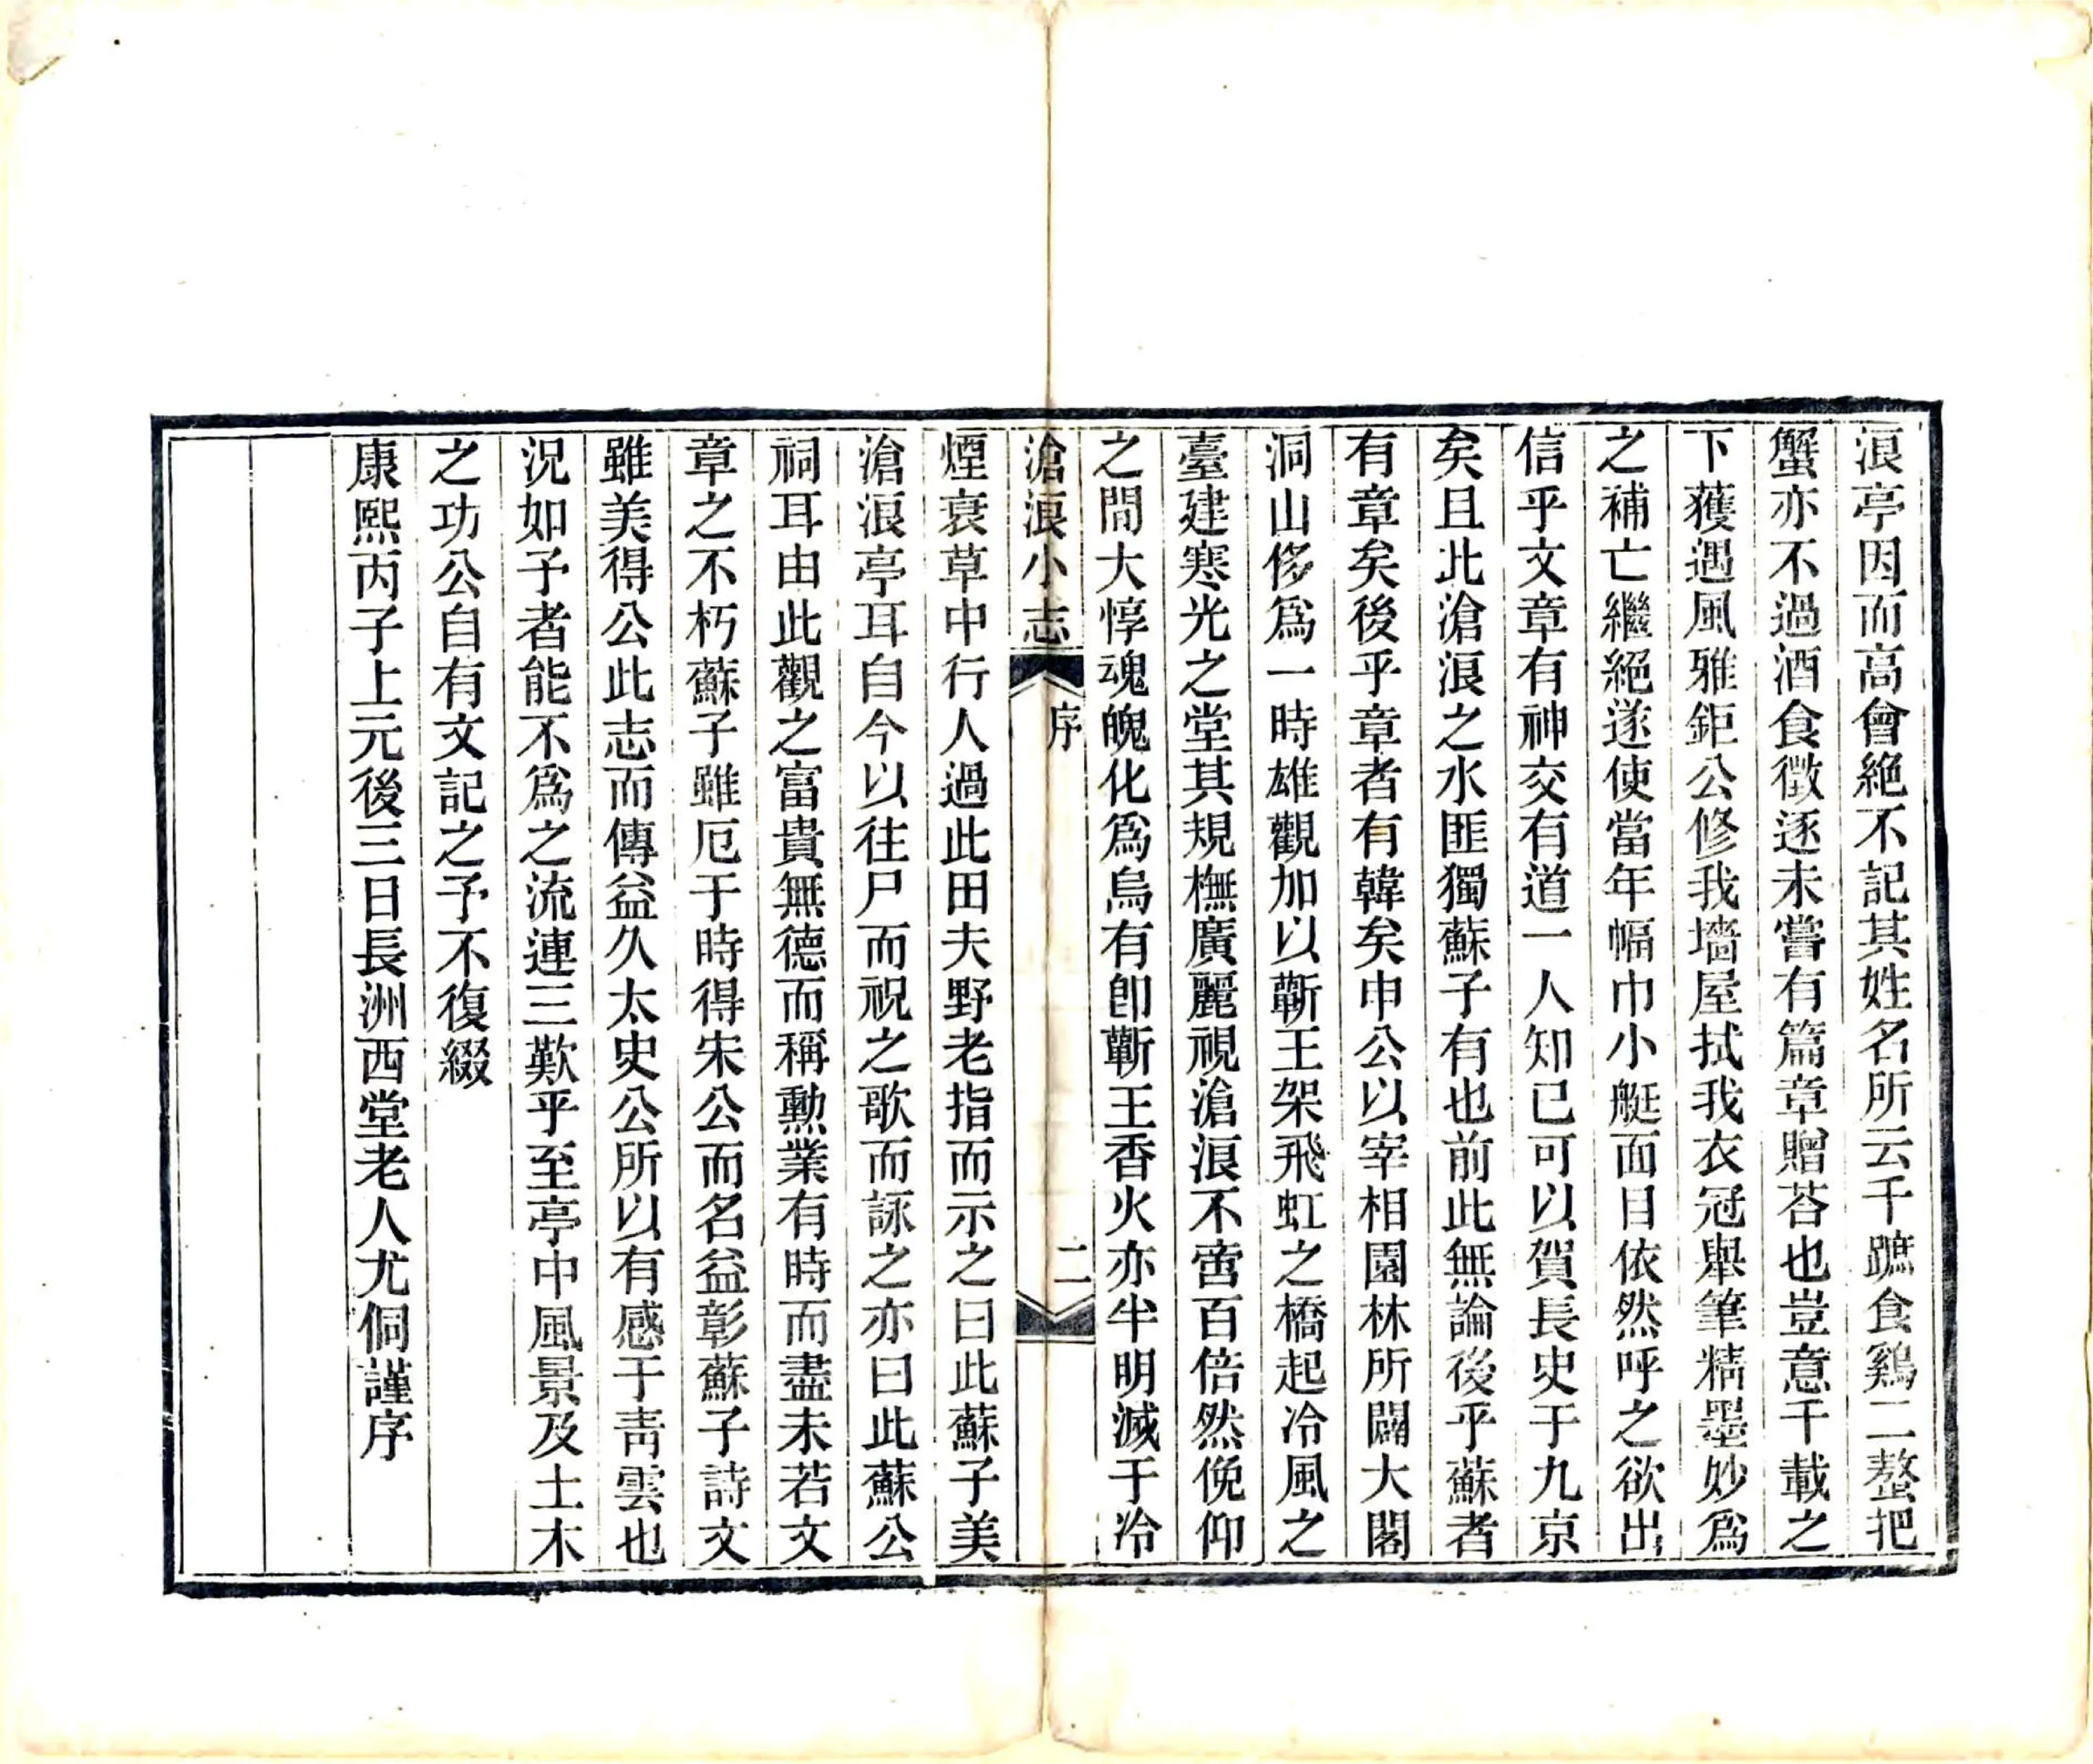 浪亭因而高會絶不記其姓名所云千蹠食鷄二螯把
蟹亦不過酒食徵逐未嘗有篇章贈荅也豈意千載之
下獲遇風雅鉅公修我墻屋拭我衣冠舉筆精墨妙爲
之補亡繼絕遂使當年幅巾小艇面目依然呼之欲出
信乎文章有神交有道一人知已可以賀長史于九京
矣且此滄浪之水匪獨蘇子有也前此無論後乎蘇者
有章矣後乎章者有韓矣申公以宰相園林所闢大閣
洞山侈爲一時雄觀加以蘄王架飛虹之橋起冷風之
臺建寒光之堂其規橅廣麗視滄浪不啻百倍然俛仰
之間大惇魂魄化爲烏有卽蘄王香火亦半明滅于冷
滄浪小志
序
二
煙衰草中行人過此田夫野老指而示之曰此蘇子美
滄浪亭耳自今以往尸而祝之歌而詠之亦曰此蘇公
祠耳由此觀之富貴無德而稱勲業有時而盡未若文
章之不朽蘇子雖厄于時得宋公而名益彰蘇子詩文
雖美得公此志而傳益久太史公所以有感于靑雲也
況如予者能不爲之流連三歎乎至亭中風景及土木
之功公自有文記之予不復綴
康熙丙子上元後三日長洲西堂老人尤侗謹序